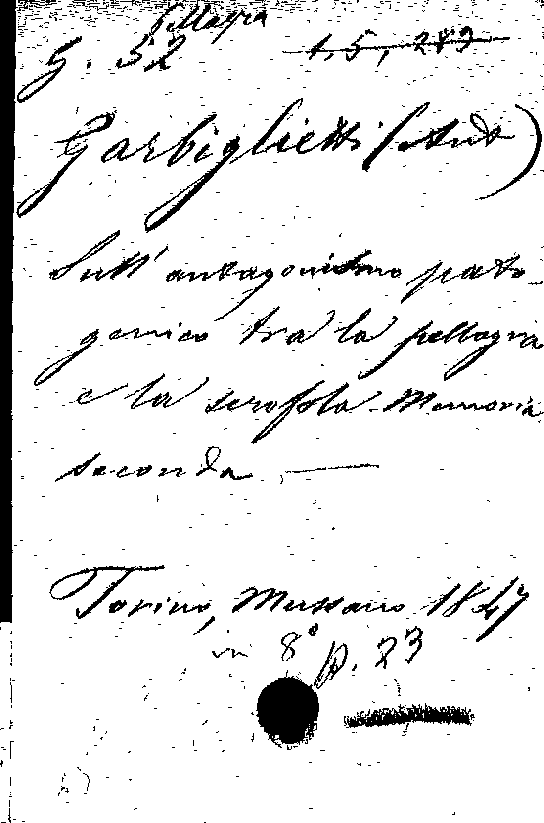 Pellagra
G. 52 1, 5, 283
Garbiglietti (Ant)
Sull' antagonismo pato-
genico tra la pellagra
e la scrofola. Memoria
seconda. —
Torino, Mussano 1847
in 8° p. 23